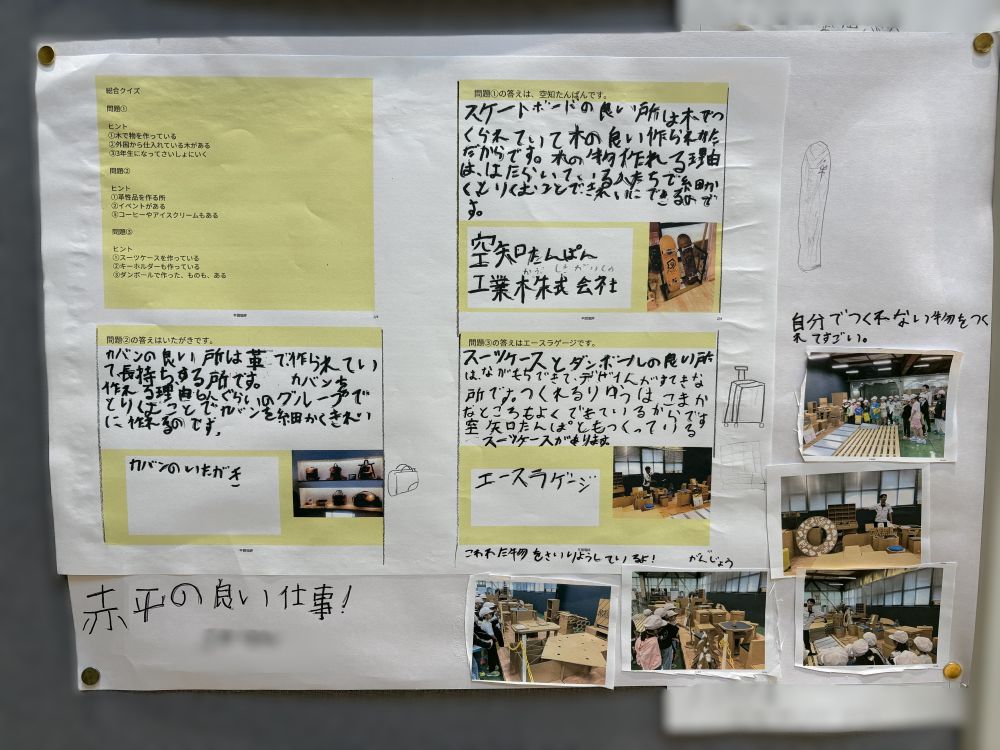 総合クイズ
問題①
ヒント
①木で物を作っている
②外国から仕入れている木がある
③3年生になってさいしょにいく
問題②
ヒント
①革製品を作る所
②イベントがある
③コーヒーやアイスクリームもある
問題③
ヒント
①スーツケースを作っている
②キーホルダーも作っている
③ダンボールで作った、ものも、ある
問題①の答えは、空知たんぱんです。
スケートボードの良い所は木でつ
くられていて木の良い作られ方
だからです。木の物作れる理由
は、はたらいている人たちで細か
くもりくむことできれいにできるので
す。
空知たんぱん
工業株式会社
問題②の答えはいたがきです。
カバンの良い所は革で作られてい
て長持ちする所です。カバンを
作れる理由は、ぐらいのグループで
とりくむことでカバンを細かくきれい
に作れるのです。
カバンのいたがき
問題③の答えはエースラゲージです。
スーツケースとダンボールの良い所
は、ながもちできて、デザインがすてきな
所です。つくれるりゆうはこまか
なところもよくできているからです
空知たんぱんともつくっている
スーツケースがあります
エースラゲージ
こわれた物をさいりようしているよ!
がんじょう
自分でつくれない物をつく
れてすごい。
赤平の良い仕事!